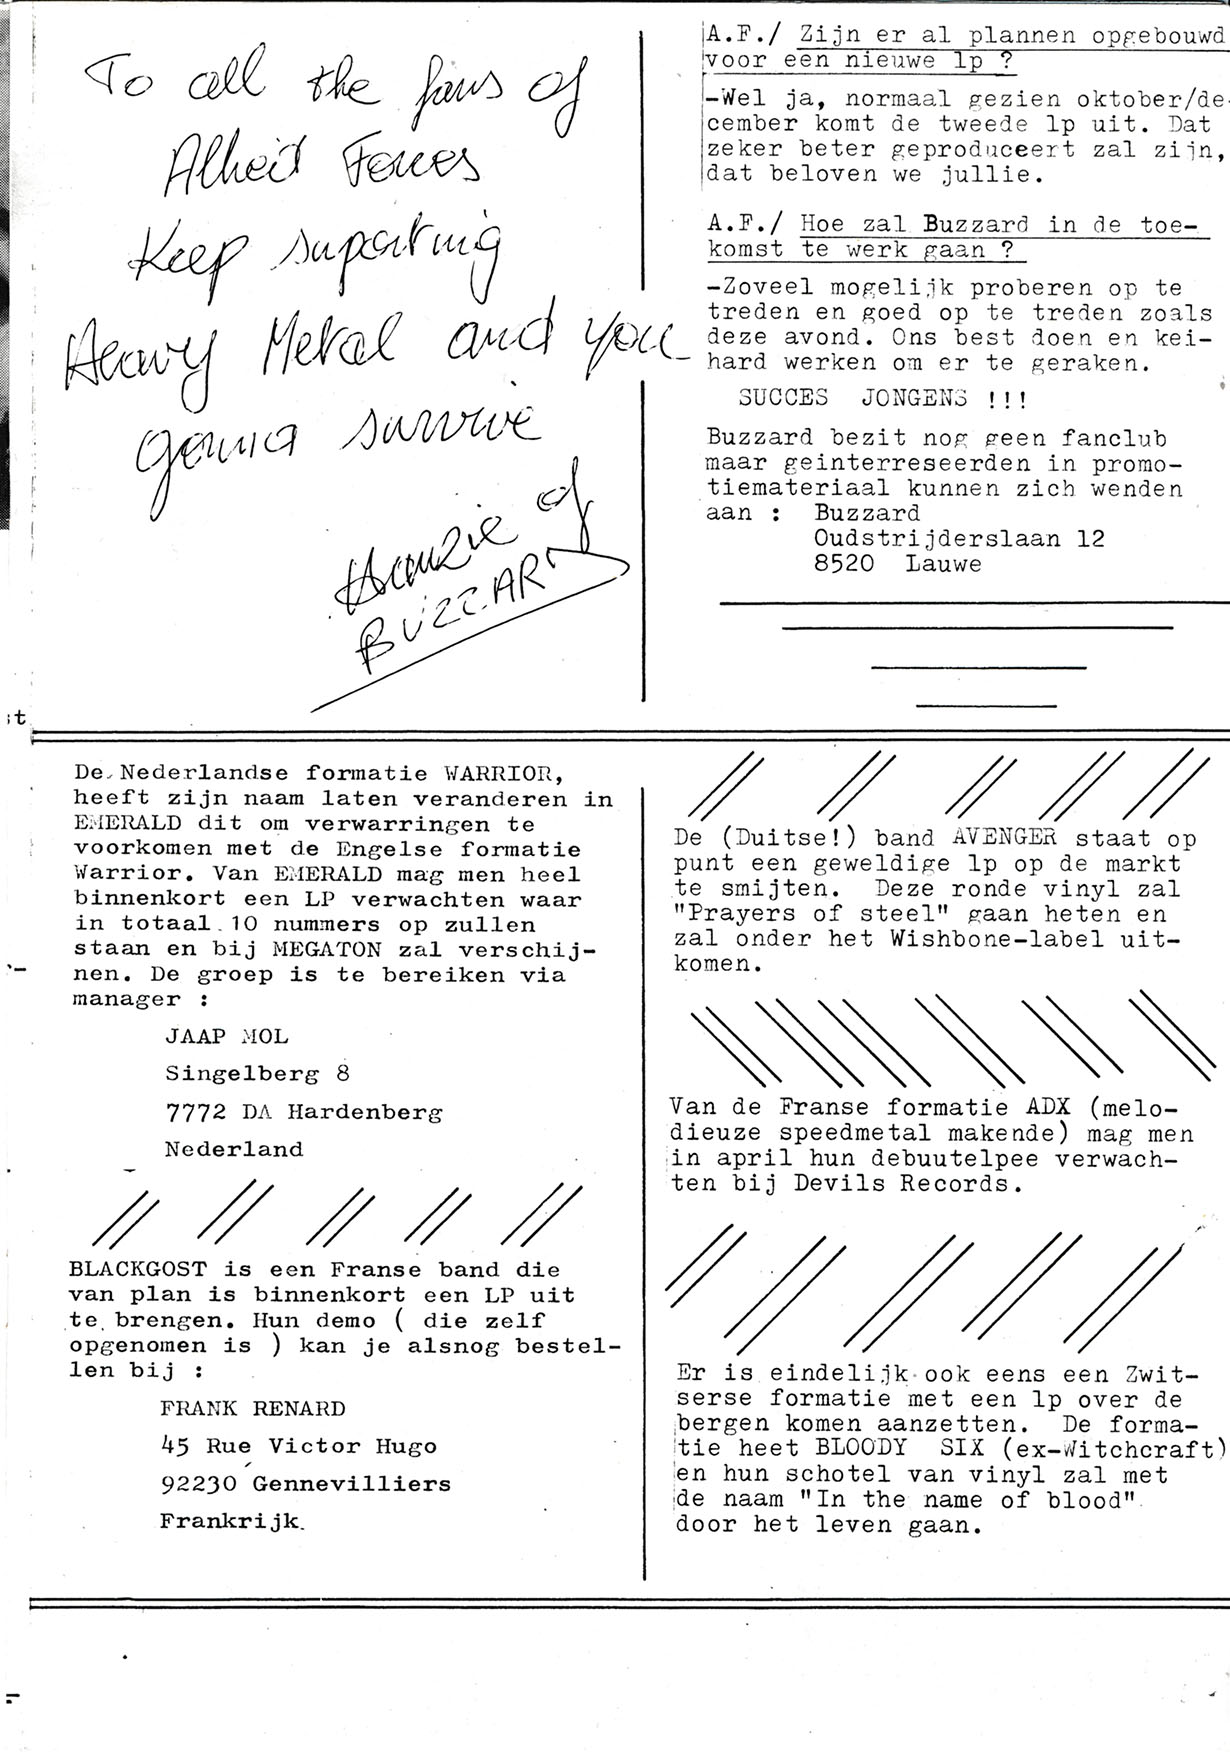 To all the fans of
Alheit Forces
Keep suporting
Heavy Metal and you
gonna survive
of
BUZZARD
A.F./ Zijn er al plannen opgebouwd
voor een nieuwe lp ?
-Wel ja, normaal gezien oktober/de-
cember komt de tweede lp uit. Dat
zeker beter geproduceert zal zijn,
dat beloven we jullie.
A.F./ Hoe zal Buzzard in de toe-
komst te werk gaan ?
-Zoveel mogelijk proberen op te
treden en goed op te treden zoals
deze avond. Ons best doen en kei-
hard werken om er te geraken.
SUCCES JONGENS !!!
Buzzard bezit nog geen fanclub
maar geinterreseerden in promo-
tiemateriaal kunnen zich wenden
aan : Buzzard
Oudstrijderslaan 12
8520 Lauwe
De Nederlandse formatie WARRIOR,
heeft zijn naam laten veranderen in
EMERALD dit om verwarringen te
voorkomen met de Engelse formatie
Warrior. Van EMERALD mag men heel
binnenkort een LP verwachten waar
in totaal 10 nummers op zullen
staan en bij MEGATON zal verschij-
nen. De groep is te bereiken via
manager :
JAAP MOL
Singelberg 8
7772 DA Hardenberg
Nederland
BLACKGOST is een Franse band die
van plan is binnenkort een LP uit
te brengen. Hun demo ( die zelf
opgenomen is ) kan je alsnog bestel-
len bij :
FRANK RENARD
45 Rue Victor Hugo
92230 Gennevilliers
Frankrijk.
De (Duitse!) band AVENGER staat op
punt een geweldige lp op de markt
te smijten. Deze ronde vinyl zal
"Prayers of steel" gaan heten en
zal onder het Wishbone-label uit-
komen.
Van de Franse formatie ADX (melo-
dieuze speedmetal makende) mag men
in april hun debuutelpee verwach-
ten bij Devils Records.
Er is eindelijk ook eens een Zwit-
serse formatie met een lp over de
bergen komen aanzetten. De forma-
tie heet BLOODY SIX (ex-Witchcraft)
en hun schotel van vinyl zal met
de naam "In the name of blood"
door het leven gaan.